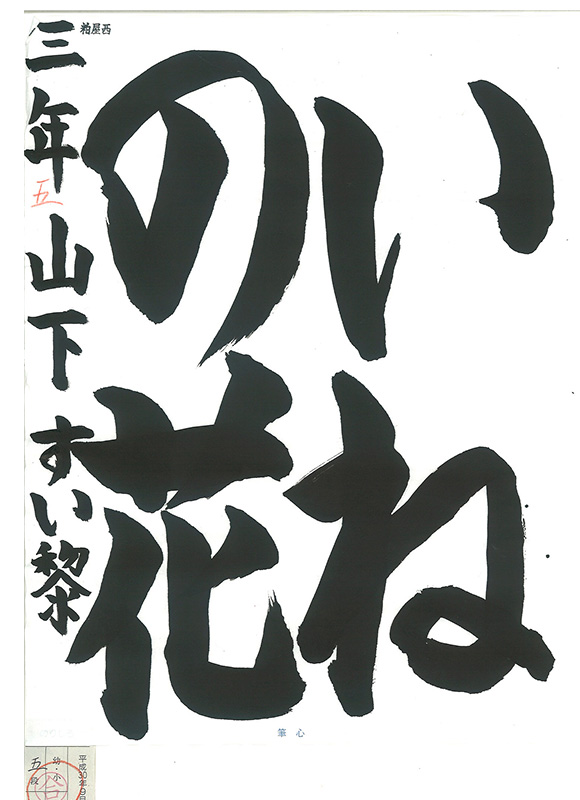 いね
の花
粕屋西
三年 山下 すい黎
五
筆心
平成30年9
幼・小
五段
合